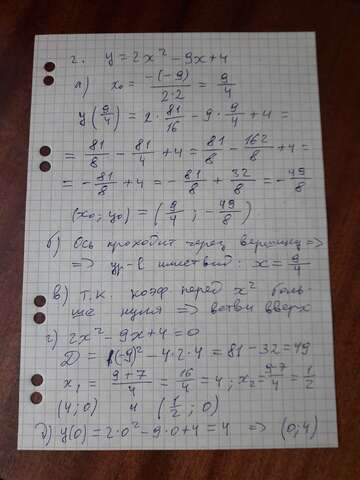 2. y = 2x² - 9x + 4
а) x₀ = -(-9)/2·2 = 9/4
y(9/4) = 2 · 81/16 - 9 · 9/4 + 4 =
= 81/8 - 81/4 + 4 = 81/8 - 162/8 + 4 =
= -81/8 + 4 = -81/8 + 32/8 = -49/8
(x₀; y₀) = (9/4; -49/8)
б) Ось проходит через вершину =>
=> ур-е имеет вид: x = 9/4
в) т.к. коэф перед x² боль-
ше нуля => ветви вверх
г) 2x² - 9x + 4 = 0
D = (-9)² - 4·2·4 = 81 - 32 = 49
x₁ = 9+7/4 = 16/4 = 4; x₂ = 9-7/4 = 1/2
(4; 0) и (1/2; 0)
д) y(0) = 2·0² - 9·0 + 4 = 4 => (0; 4)